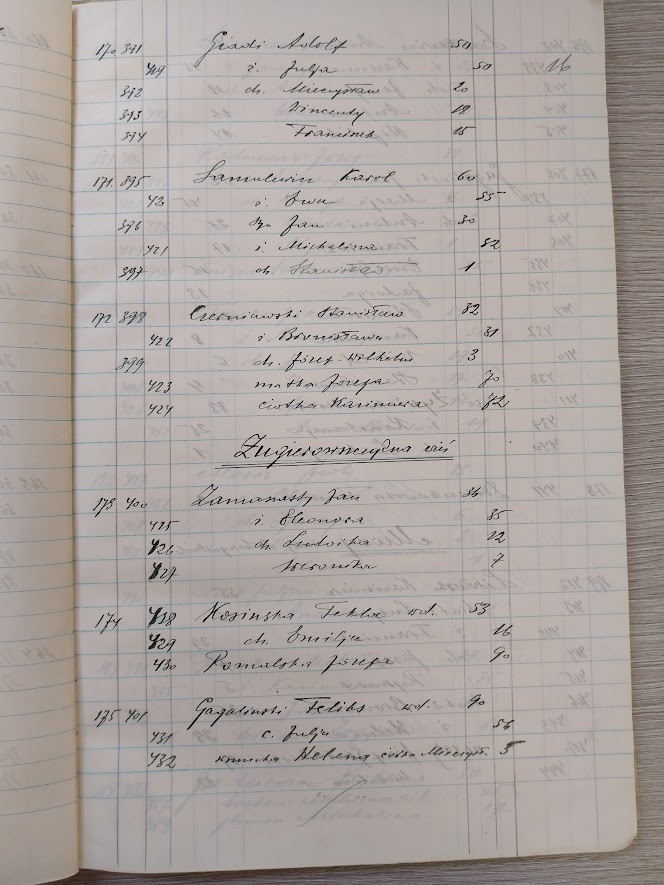 170 391 Giadi Adolf 50
419 ż. Julja 50 16
392 ch. Mieczysław 20
393 Wincenty 18
394 Franciszek 15
171. 395 Samulewicz Karol 60
420 ż. Ewa 55
396 syn Jan 30
421 ż. Michalina 32
397 ch. Stanisław 1
172 398 Czerniawski Stanisław 32
422 ż. Bronisława 31
399 ch. Józef Wilhelm 3
423 matka Józefa 70
424 ciotka Kazimiera 72
wieś
173 400 Jan 34
425 ż. Eleonora 35
426 ch. Ludwika 12
427 Weronika 7
174 428 Kosińska Tekla wd. 53
429 ch. Emilja 16
430 Romalska Józefa 90
175 401 Gagaliński Feliks wd. 90
431 c. Julja 56
432 wnuczka Helena córka Mieczysł. 5